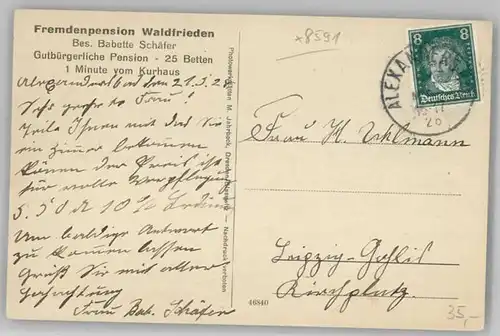 Fremdenpension Waldfrieden
Bes. Babette Schäfer
Gutbürgerliche Pension - 25 Betten
1 Minute vom Kurhaus
Alexandersbad den 21.5.28
Sehr geehrte Frau!
Teile Ihnen mit das Sie
ein Zimmer bekommen
können der Preis ist
für volle Verpflegung
5.50 u 10%
Um baldige Antwort
zu kommen lassen
Grüßt Sie mit aller
Hochachtung
Frau Bab. Schäfer
Photowerkstätten M. Jahrbeck, Dresden — Nachdruck verboten
x8591
8 8
Deutsches Reich
ALEXAN
Frau M. Uhlmann
Leipzig-Gohlis
Kirchplatz.
46840
35,-